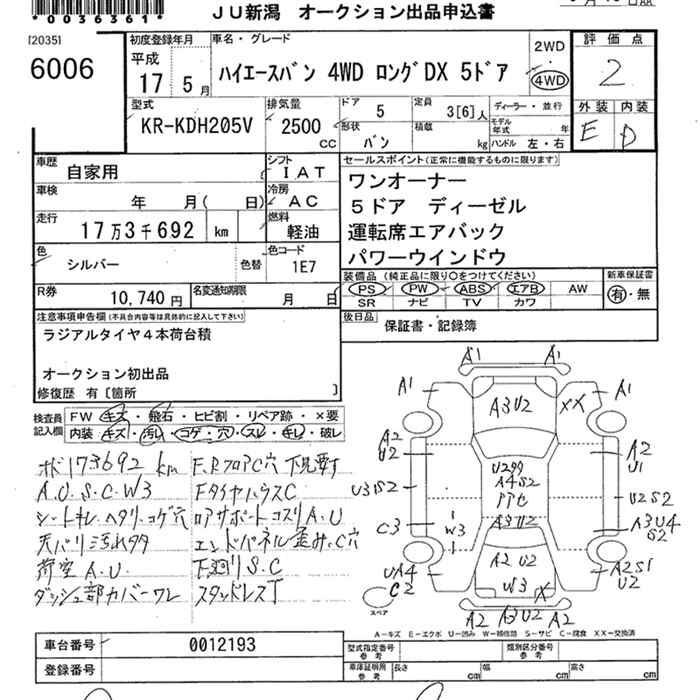 *0036361*
JU新潟 オークション出品申込書
[2035]
6006
初度登録年月
平成
17 5月
車名・グレード
ハイエースバン 4WD ロングDX 5ドア
2WD
4WD
評価点
2
外装 内装
E D
型式
KR-KDH205V
排気量
2500
CC
ドア 5
形状 バン
定員 3[6]人
積載 kg
ディーラー・並行
モデル年式 年
ハンドル 左・右
車歴
自家用
シフト
IAT
車検
年 月( 日)
冷房
AC
走行
17万3千692 km
燃料
軽油
色
シルバー
色替
色コード
1E7
R券
10,740円
名変通知期限
月 日
セールスポイント(正常に機能するものに限ります)
ワンオーナー
5ドア ディーゼル
運転席エアバック
パワーウインドウ
装備品(純正品に限り○をつけてください)
PS PW ABS エアB AW
SR ナビ TV カワ
新車保証書
有・無
後日品
保証書・記録簿
注意事項申告欄(不具合内容等は具体的に記入して下さい)
ラジアルタイヤ4本荷台積
オークション初出品
修復歴 有[箇所 ]
検査員
記入欄
FW キズ・飛石・ヒビ割・リペア跡・×要
内装 キズ・汚れ・コゲ・穴・スレ・キレ・破レ
メボ173692km
A.U.S.C.W3
シートキレ・ヘタリ・コゲ穴
天バリ汚れタタ
荷室A.U
ダッシュ部カバーワレ
F,RフロアC穴 下見要す
FタイヤハウスC
コアサポートコスリA.U
エンドパネル歪み.C穴
下廻りS.C
スタッドレスT
A1 A1
A1 A1
A3U2 XX
A2
U2
A2
U1
U299
A4S2
U3S2
U2S2
A3U2
C3
W3
A3U4
S2
A2U2
W3
X
UA4
C2
A2S1
U2
スペア
A2 A3U2 A2
A-キズ E-エクボ U-凹み W-補修跡 S-サビ C-腐食 XX-交換済
車台番号
0012193
登録番号
型式指定番号
参考
類別区分番号
参考
車庫証明用
参考
長さ cm
幅 cm
高さ cm